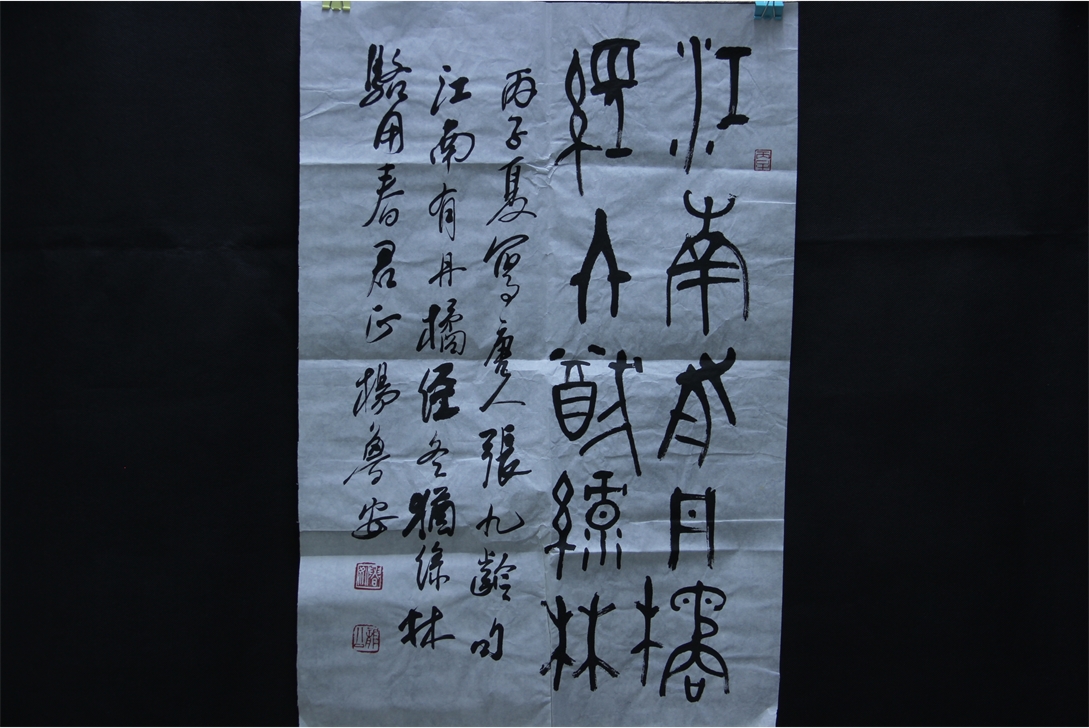 江南有丹橘
經冬猶綠林
丙子夏寫唐人張九齡句
江南有丹橘經冬猶綠林
駱用春君正楊魯安